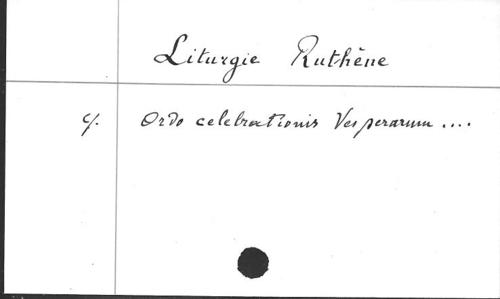 Liturgie Ruthène
cf. Ordo celebrationis Vesperarum ....